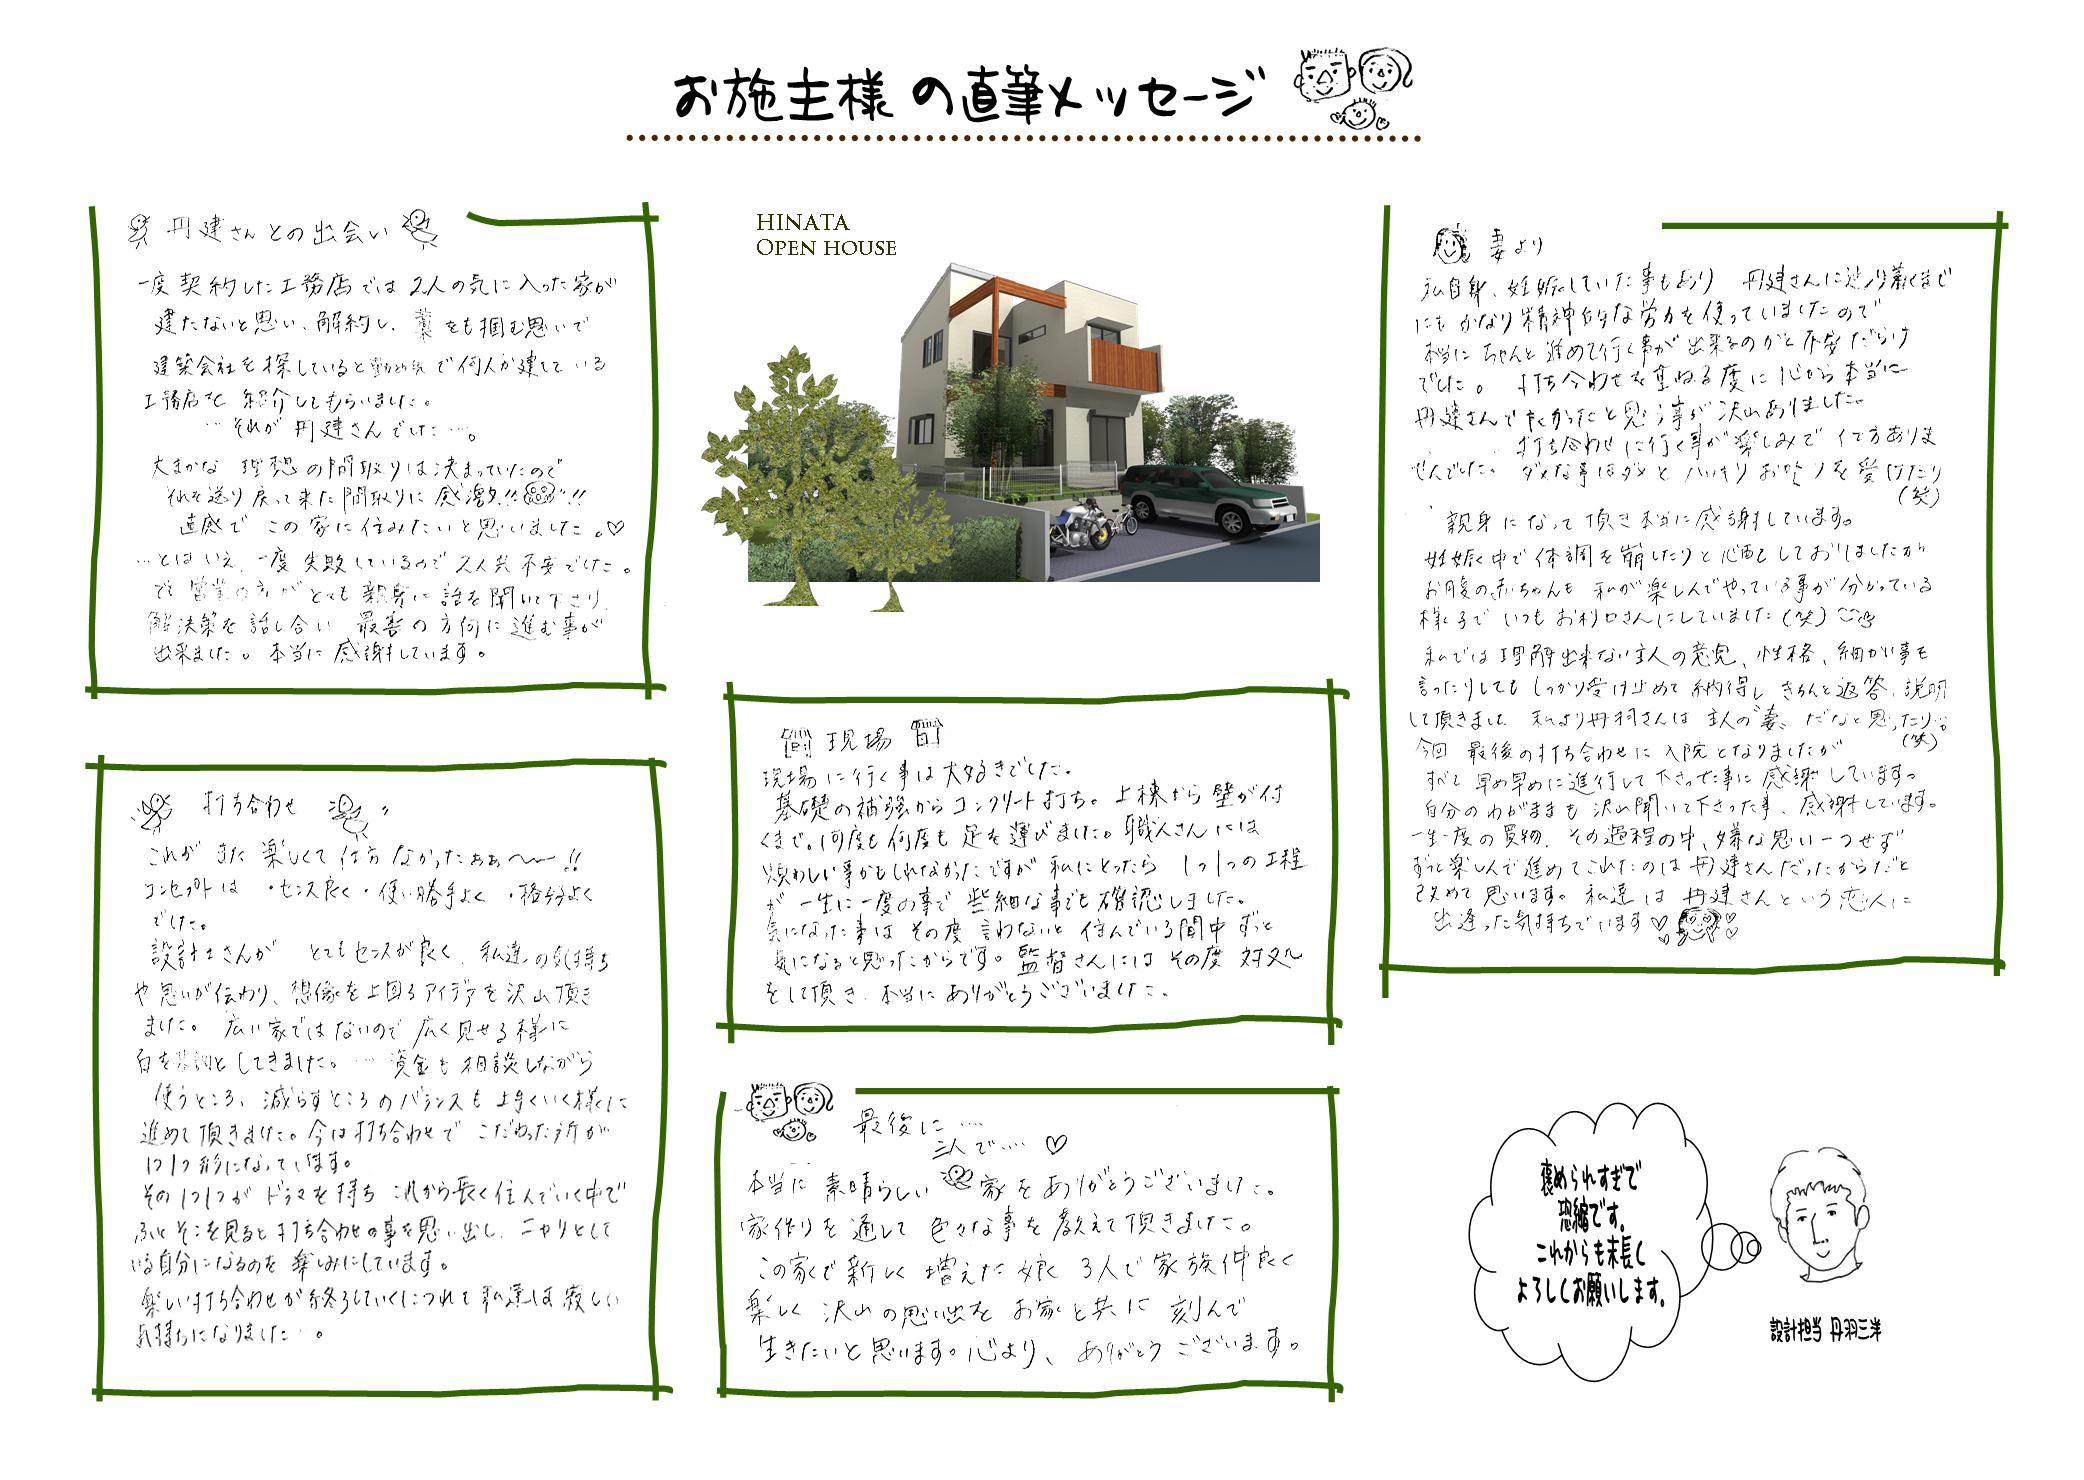 お施主様の直筆メッセージ
丹建さんとの出会い
一度契約した工務店では2人の気に入った家が
建たないと思い、解約し、藁をも掴む思いで
建築会社を探していると勤め先で何人か建てている
工務店を紹介してもらいました。
…それが丹建さんでした…。
大まかな理想の間取りは決まっていたので
それを送り戻って来た間取りに感激!!!!
直感でこの家に住みたいと思いました。♡
…とはいえ、一度失敗しているので2人共不安でした。
でも営業の方がとても親身に話を聞いて下さり
解決策を話し合い最善の方向に進む事が
出来ました。本当に感謝しています。
打ち合わせ
これがまた楽しくて仕方なかったぁぁ〜!!
コンセプトは・センス良く・使い勝手よく・格好よく
でした。
設計士さんがとてもセンスが良く、私達の気持ち
や思いが伝わり、想像を上回るアイデアを沢山頂き
ました。広い家ではないので広く見せる様に
白を基調としてきました。…資金も相談しながら
使うところ、減らすところのバランスも上手くいく様に
進めて頂きました。今は打ち合わせでこだわった所が
1つ1つ形になっています。
その1つ1つがドラマを持ちこれから長く住んでいく中で
ふとそこを見ると打ち合わせの事を思い出し、ニヤリとして
いる自分になるのを楽しみにしています。
楽しい打ち合わせが終了していくにつれて私達は寂しい
気持ちになりました…。
HINATA
OPEN HOUSE
現場
現場に行く事は大好きでした。
基礎の補強からコンクリート打ち。上棟から壁が付
くまで。何度も何度も足を運びました。職人さんには
煩わしい事かもしれなかったですが私にとったら1つ1つの工程
が一生に一度の事で些細な事でも確認しました。
気になった事はその度言わないと住んでいる間中ずっと
気になると思ったからです。監督さんにはその度対処
をして頂き、本当にありがとうございました。
最後に…
三人で…♡
本当に素晴らしい家をありがとうございました。
家作りを通して色々な事を教えて頂きました。
この家で新しく増えた娘と3人で家族仲良く
楽しく沢山の思い出をお家と共に刻んで
生きたいと思います。心より、ありがとうございます。
妻より
私自身、妊娠していた事もあり丹建さんに辿り着くまで
にもかなり精神的な労力を使っていましたので
本当にちゃんと進めて行く事が出来るのかと不安だらけ
でした。打ち合わせを重ねる度に心から本当に
丹建さんで良かったと思う事が沢山ありました。
打ち合わせに行く事が楽しみで仕方ありま
せんでした。ダメな事はダメとハッキリお叱りを受けたり
(笑)
親身になって頂き本当に感謝しています。
妊娠中で体調を崩したりと心配しておりましたが
お腹の赤ちゃんも私が楽しんでやっている事が分かっている
様子でいつもお利口さんにしていました(笑)
私では理解出来ない主人の意見、性格、細かい事を
言ったりしてもしっかり受け止めて納得しきちんと返答、説明
して頂きました。私より丹羽さんは主人の"妻"だなと思ったり。
(笑)
今回最後の打ち合わせに入院となりましたが
すべて早め早めに進行して下さった事に感謝しています。
自分のわがままも沢山聞いて下さった事、感謝しています。
一生一度の買物、その過程の中、嫌な思い一つせず
ずっと楽しんで進めてこれたのは丹建さんだったからだと
改めて思います。私達は丹建さんという恋人に
出逢った気持ちでいます♡
褒められすぎで
恐縮です。
これからも末長く
よろしくお願いします。
設計担当 丹羽三洋